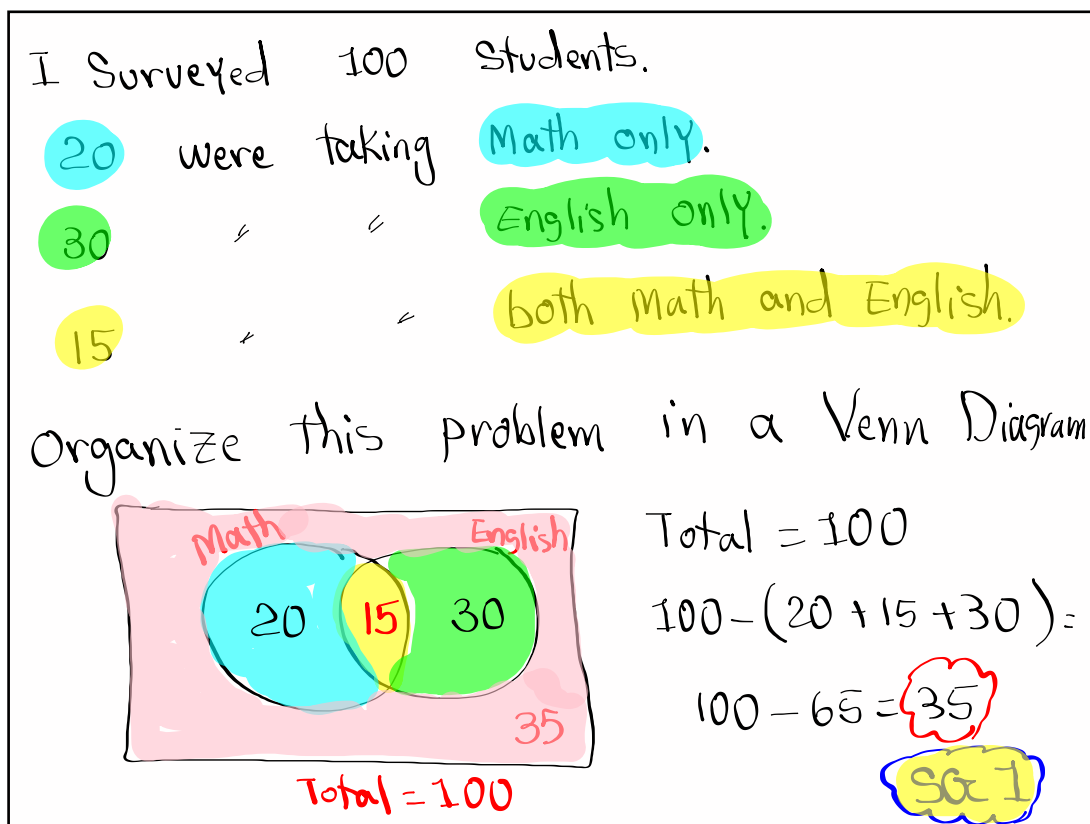 I Surveyed 100 Students.
20 were taking Math only.
30 " " English only.
15 " " both Math and English.
Organize this problem in a Venn Diagram
Math English
20 15 30
35
Total = 100
Total = 100
100 - (20 + 15 + 30) =
100 - 65 = 35
SG 1